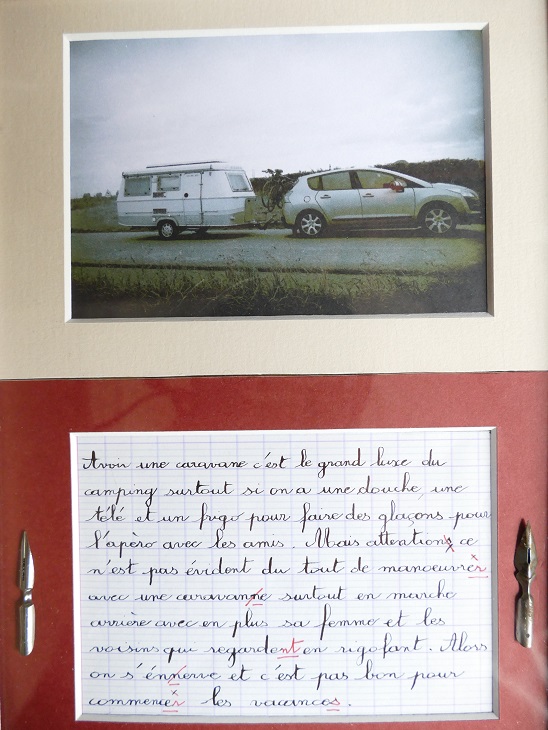 Avoir une caravane c'est le grand luxe du
camping surtout si on a une douche, une
télé et un frigo pour faire des glaçons pour
l'apéro avec les amis. Mais attentions ce
n'est pas évident du tout de manoeuvrér
avec une caravanne surtout en marche
arrière avec en plus sa femme et les
voisins qui regardent en rigolant. Alors
on s'énnerve et c'est pas bon pour
commencer les vacances.